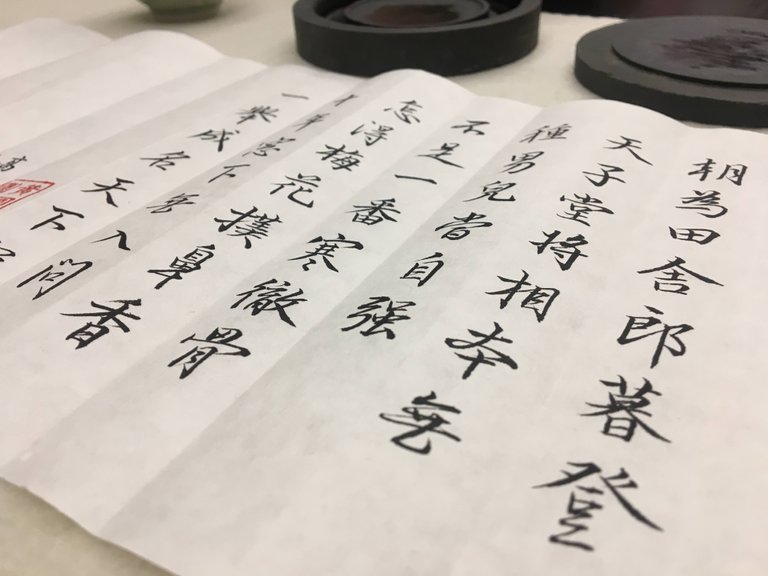 朝為田舍郎暮登
天子堂将相本無
種男兒當自强
不是一番寒徹骨
怎得梅花撲鼻香
十年窓下無人問
一舉成名天下